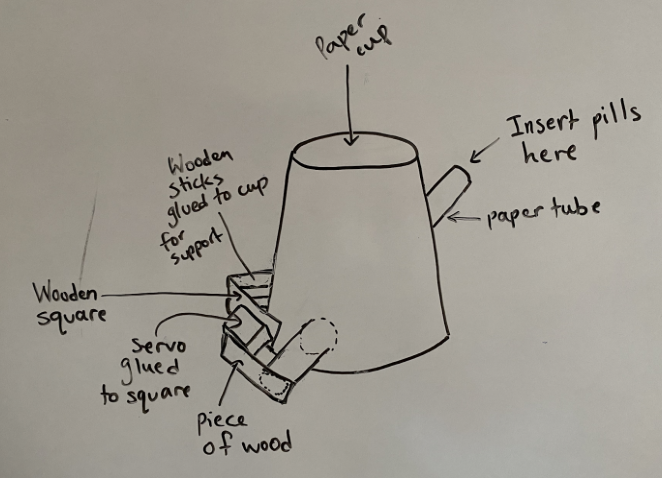 Paper
cup
Insert pills
here
paper tube
Wooden
sticks
glued to cup
for
support
Wooden
square
servo
glued
to square
piece
of wood